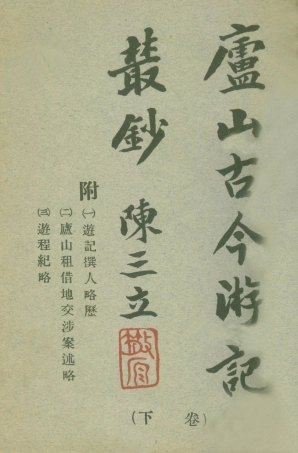 廬山古今游記
叢鈔 陳三立
附
㈠遊記撰人略歷
㈡廬山租借地交涉案述略
㈢遊程紀略
（卷下）